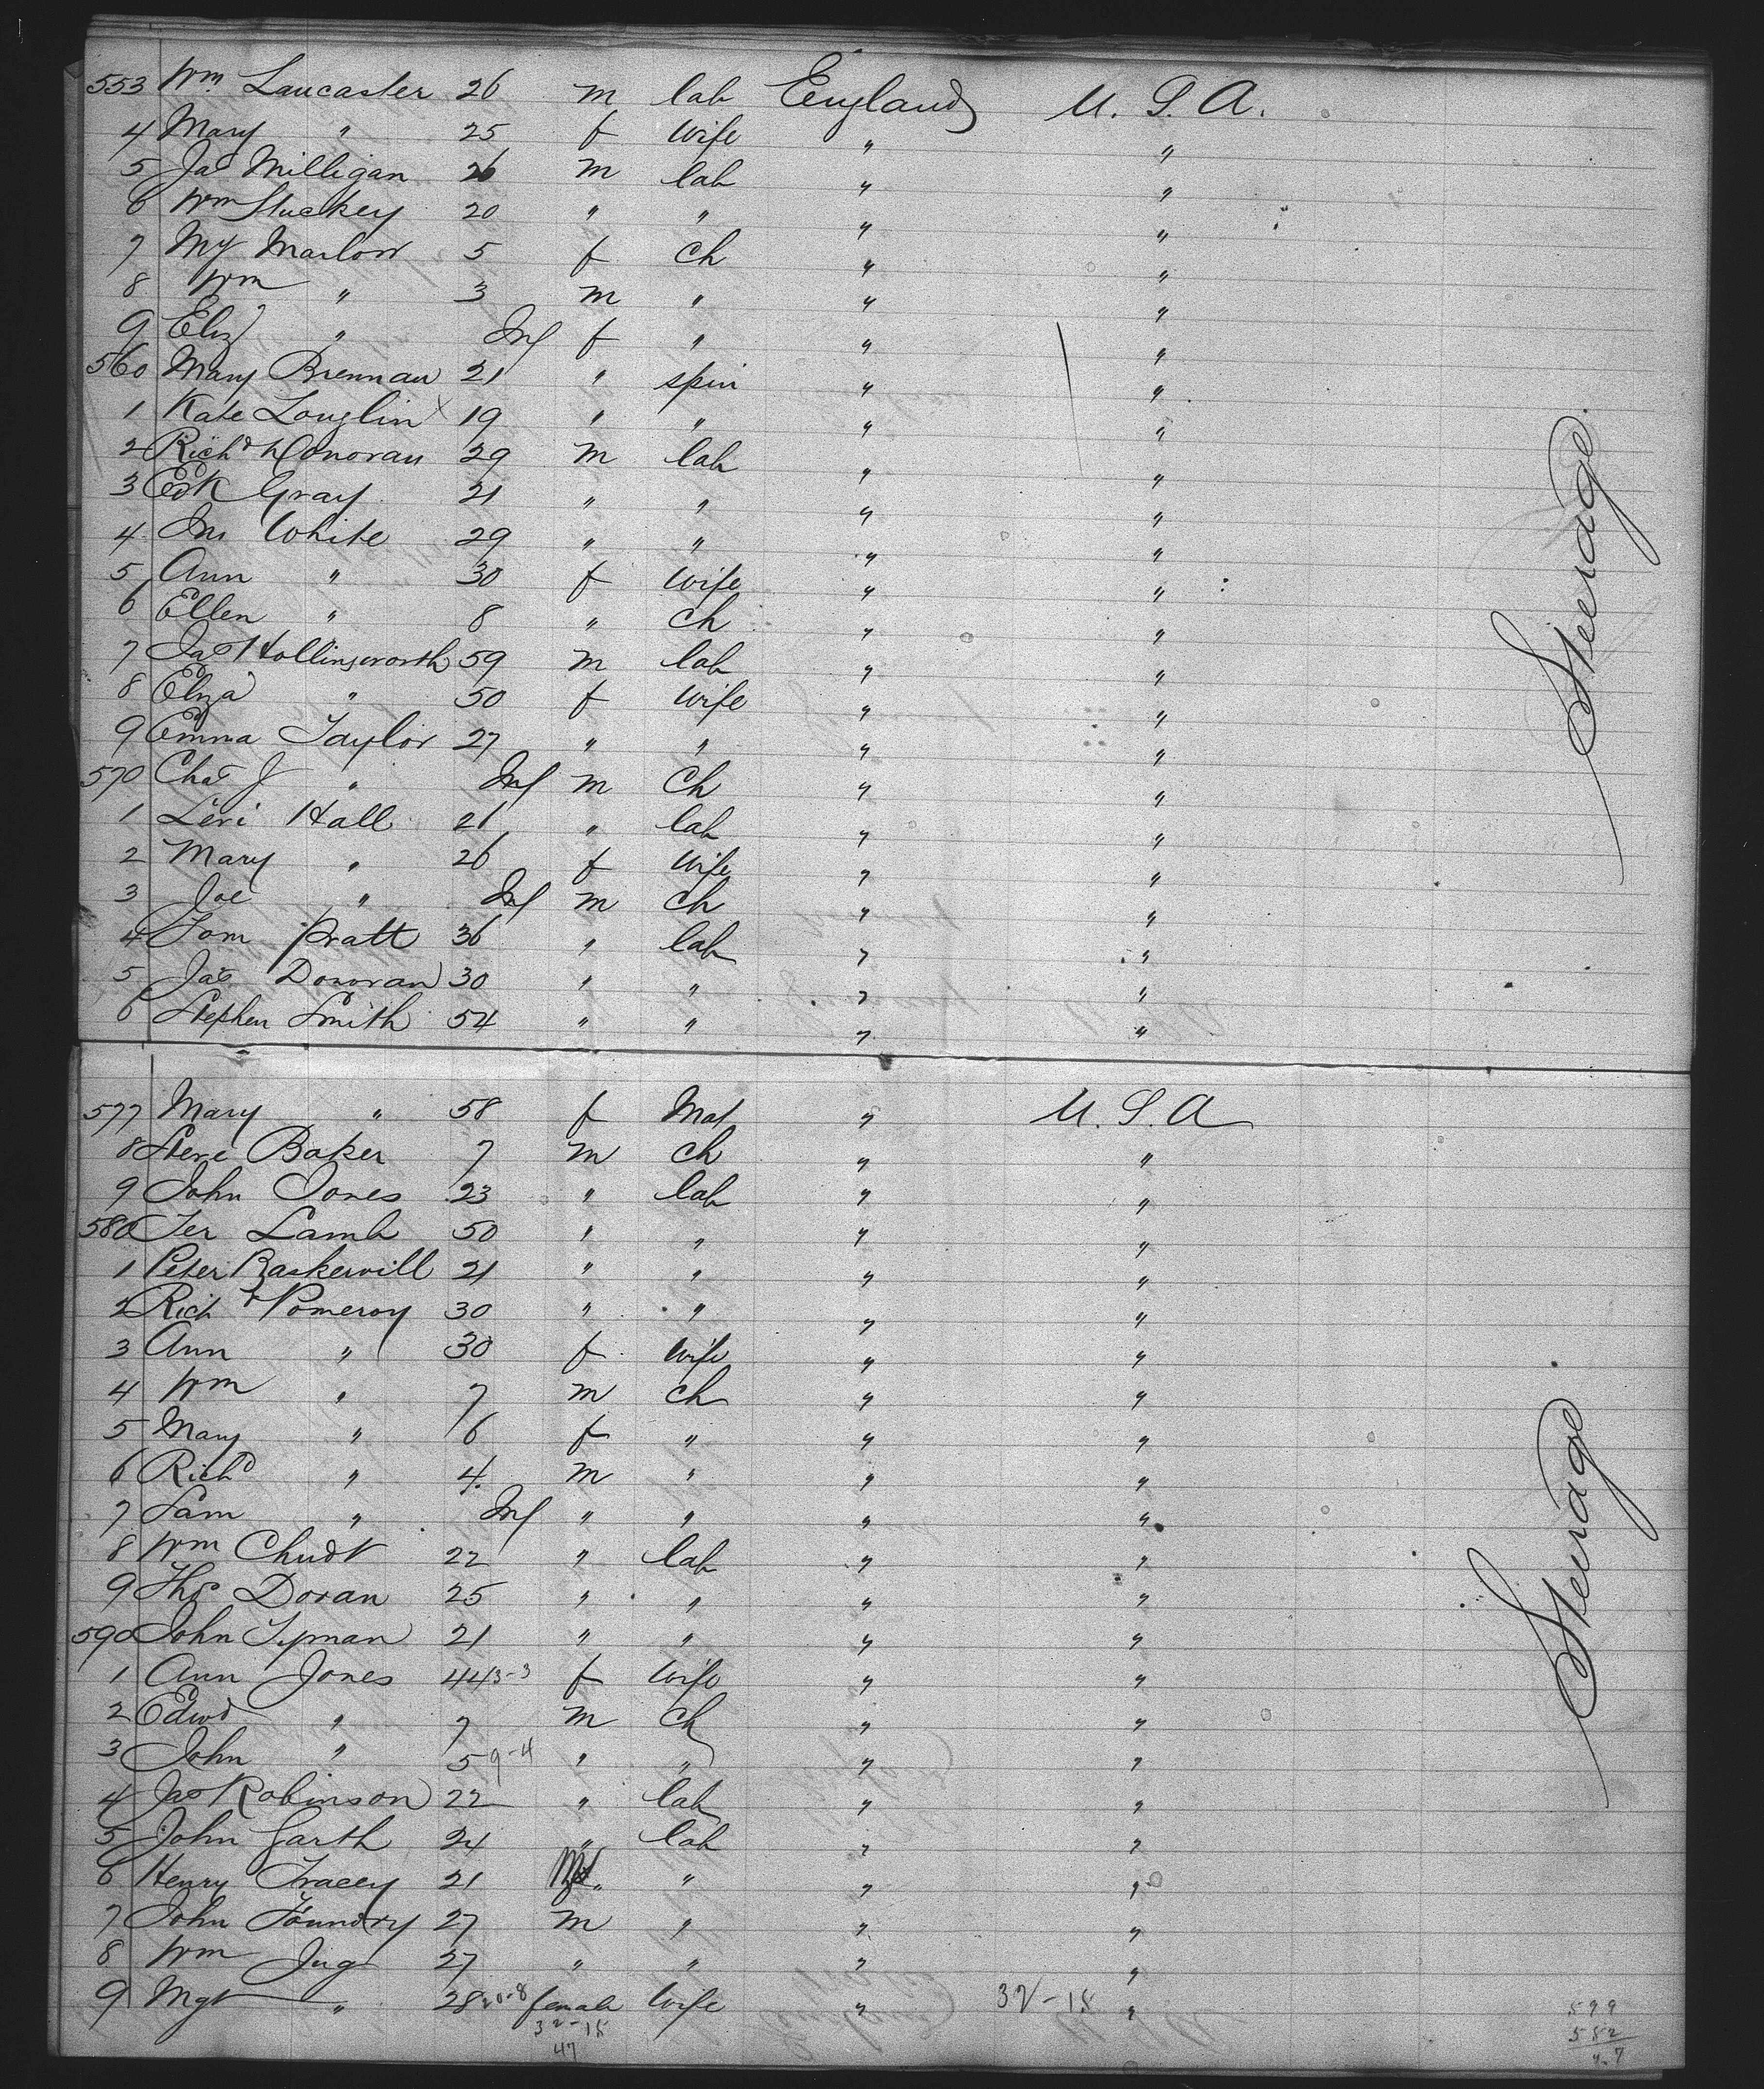 553 Wm. Lancaster 26 m lab England U. S. A.
4 Mary " 25 f wife " "
5 Jas Milligan 26 m lab " "
6 Wm Stuckey 20 " " " "
7 My Marlow 5 f ch " "
8 Wm " 3 m " " "
9 Eliz " Inf f " " "
560 Mary Brennan 21 " spin " "
1 Kate Louglin x 19 " " " "
2 Richd Donovan 29 m lab " "
3 Edk Gray 21 " " " "
4 Jno White 29 " " " "
5 Ann " 30 f wife " "
6 Ellen " 8 " ch " "
7 Jas Hollingsworth 59 m lab " "
8 Eliza " 50 f wife " "
9 Emma Taylor 27 " " " "
570 Chas J " Inf m ch " "
1 Levi Hall 21 " lab " "
2 Mary " 26 f wife " "
3 Joe " Inf m ch " "
4 Tom Pratt 36 " lab " "
5 Jas Donovan 30 " " " "
6 Stephen Smith 54 " " " "
Steerage.
577 Mary " 58 f Mat " U. S. A
8 Steve Baker 7 m ch " "
9 John Jones 23 " lab " "
580 Jer Lamb 50 " " " "
1 Peter Baskervill 21 " " " "
2 Richd Pomeroy 30 " " " "
3 Ann " 30 f wife " "
4 Wm " 7 m ch " "
5 Mary " 6 f " " "
6 Richd " 4. m " " "
7 Sam " Inf " " " "
8 Wm 22 " lab " "
9 Thos Doran 25 " " " "
590 John 21 " " " "
1 Ann Jones 44 3-3 f wife " "
2 Edwd " 7 m ch " "
3 John " 5 9-4 " " " "
4 Jas Robinson 22 " lab " "
5 John Garth 24 " lab " "
6 Henry Tracey 21 " " " "
7 John Foundry 27 m " " "
8 Wm 27 " " " "
9 Mgt " 28 20-8 female wife " 32-15 "
32-15
47
Steerage
599
552
47